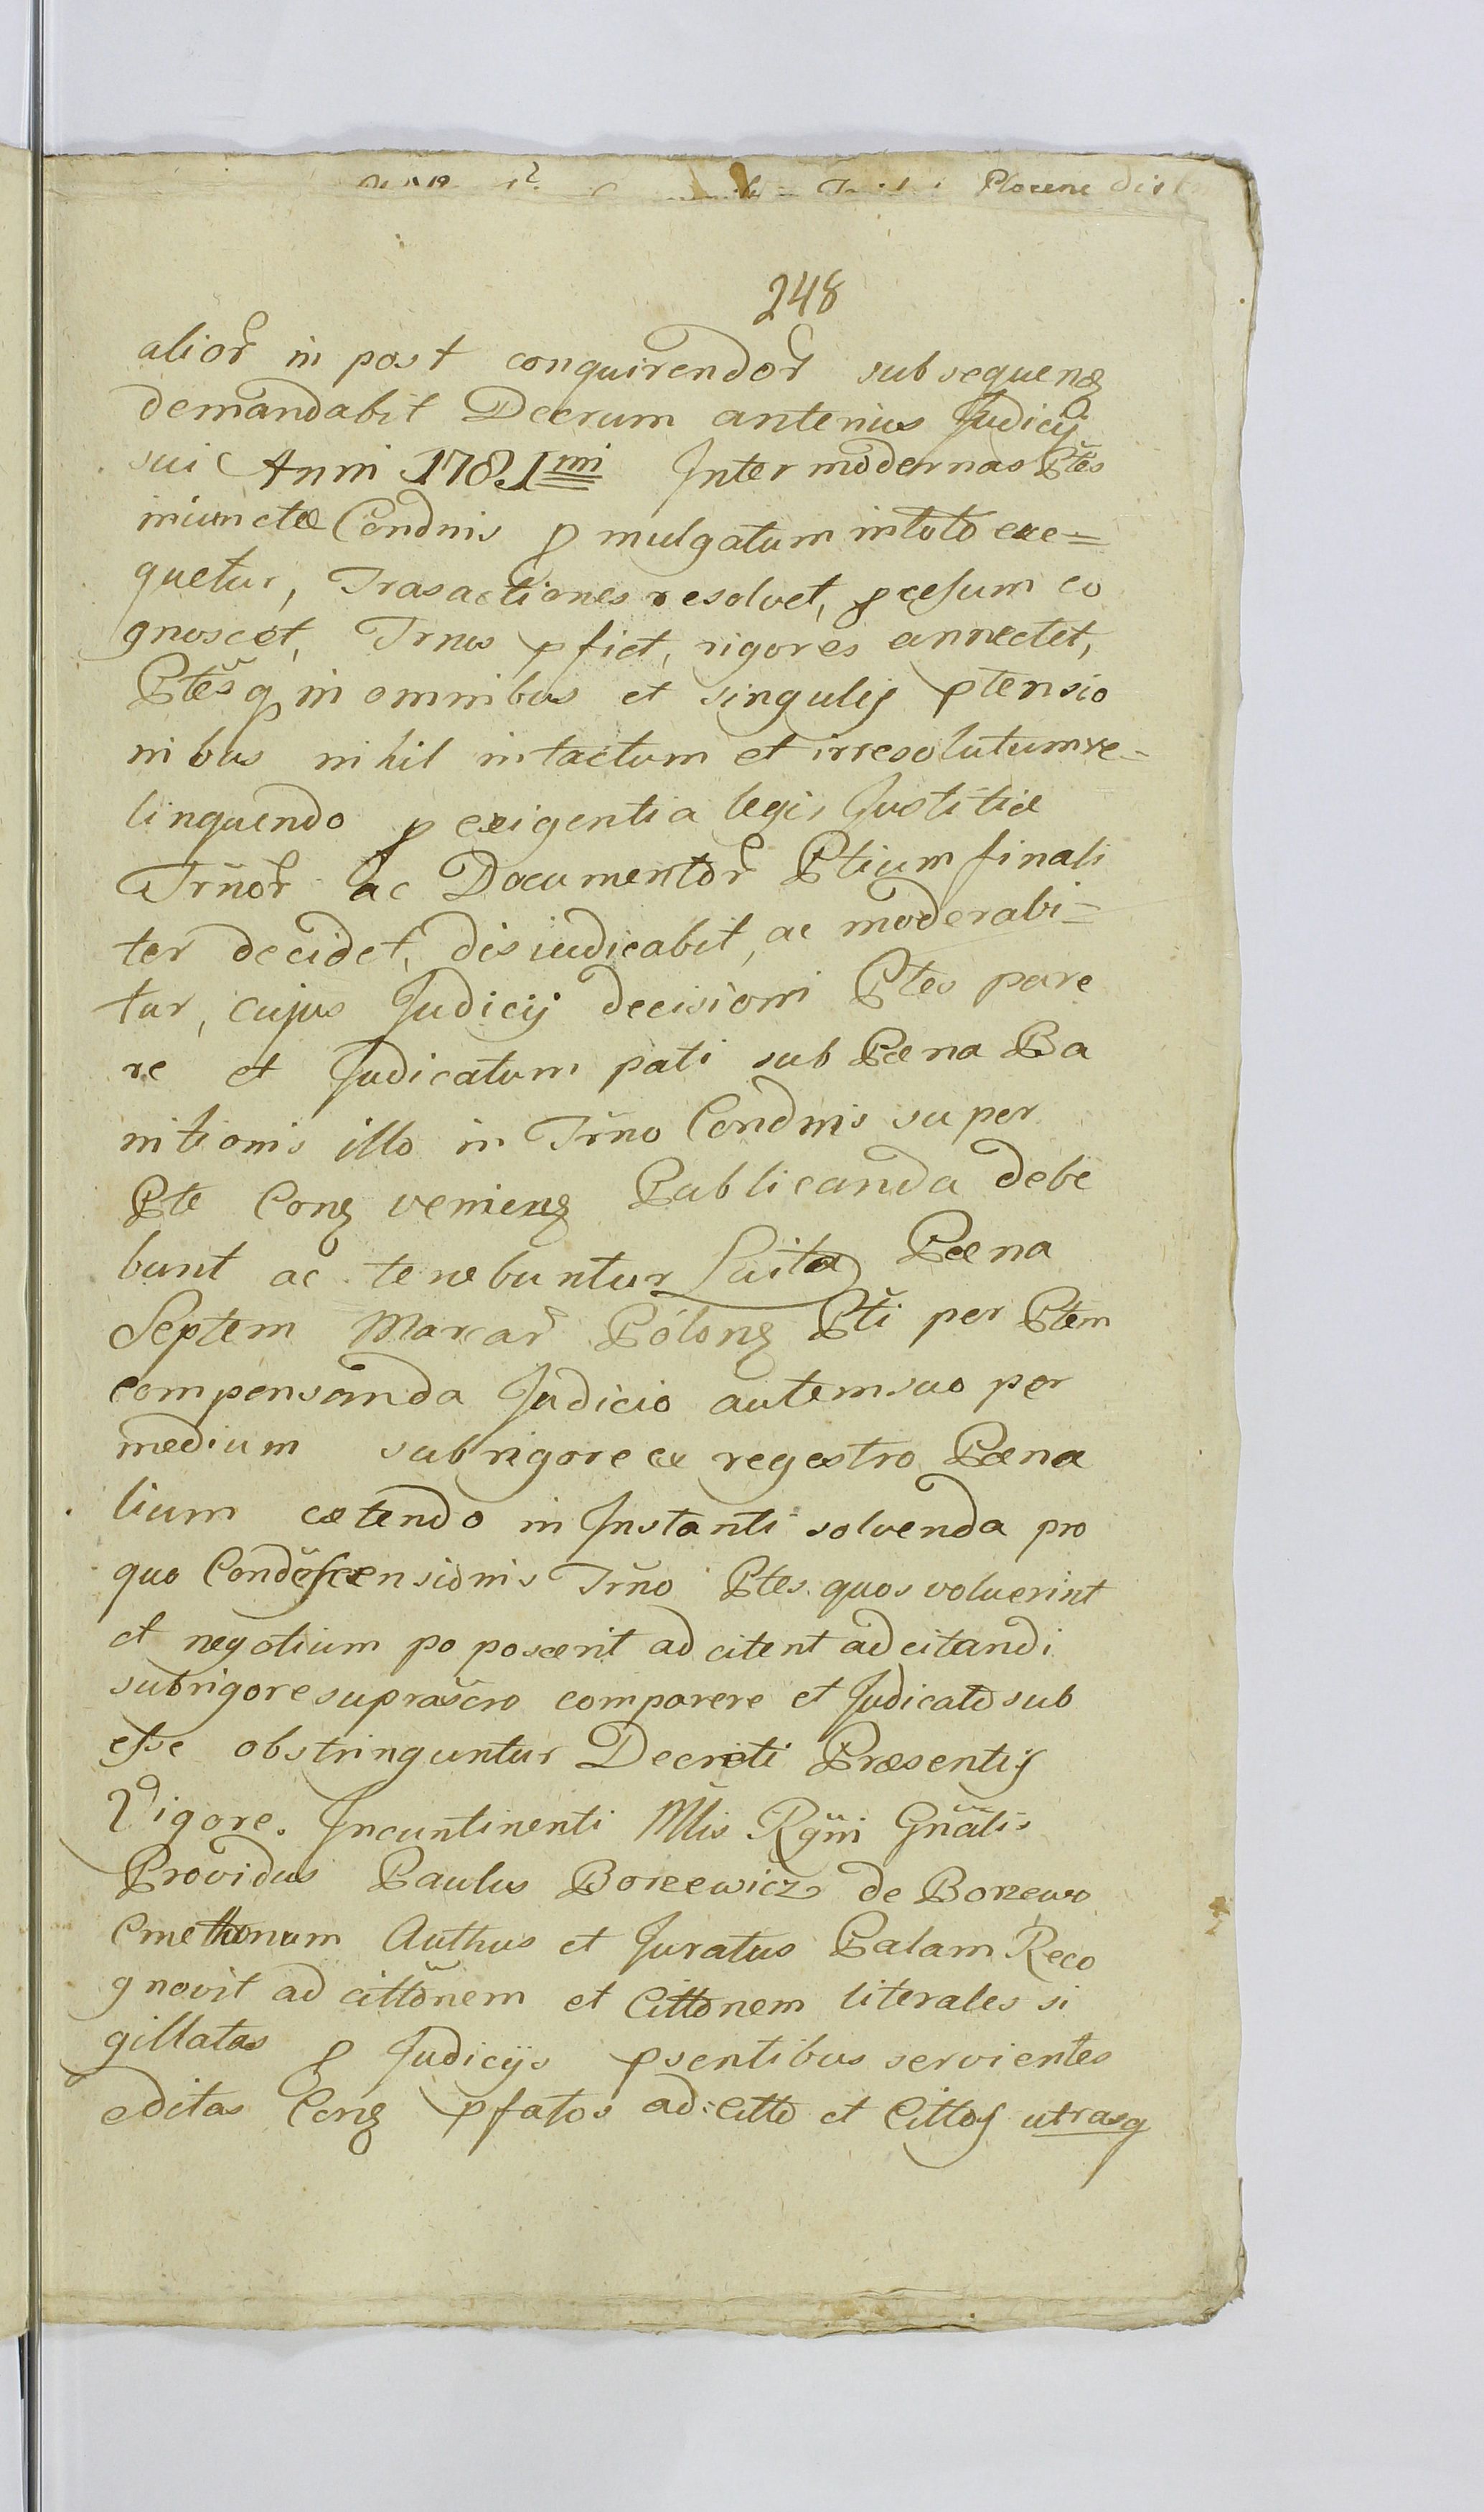 Plocene dist
248
alior̃ in post conquirendor̃ subsequenꝫ
demandabit Decrum anterius Judicij
sui Anni 1781mi Inter modernas Ptes
iniunctæ Condnis p mulgatum in toto exe=
quetur, Trasactiones resolvet, pcessum co
gnoscet, Trnos pfiet, rigores annectet,
Ptes̃q in omnibus et singulis ptensio
nibus nihil intactum et irresolutum re=
linquendo p exigentia legis Justitiæ
Trñor̃ ac Documentor̃ Ptium finali
ter decidet, disiudicabit, ac moderabi=
tur, cujus Judicij decisioni Ptes pare
re et Judicatum pati sub Pœna Ba
nitionis illo in Trño Condnis super
Pte Conꝫ venienꝫ Publicanda debe
bunt ac tenebuntur Luita Pœna
Septem Marcar̃ Polonꝫ Pti per Ptem
compensanda Judicio autem suo per
medium sub rigore ex regestro Pœna
lium extendo in Instanti solvenda pro
quo Condescensionis Trño Ptes quos voluerint
et negotium poposcerit adcitent adcitandi
sub rigore suprascro comparere et Judicato sub
esse obstringuntur Decreti Præsentis
Vigore. Incuntinenti Mlis Rgni Gnalis
Providus Paulus Borzewicz de Borzewo
Cmethonum Authus et Juratus Palam Reco
gnovit ad cittõnem et Cittonem literales si
gillatas p Judicijs psentibus servientes
editas Conꝫ pfatos ad:Citto et Cittos utrasq